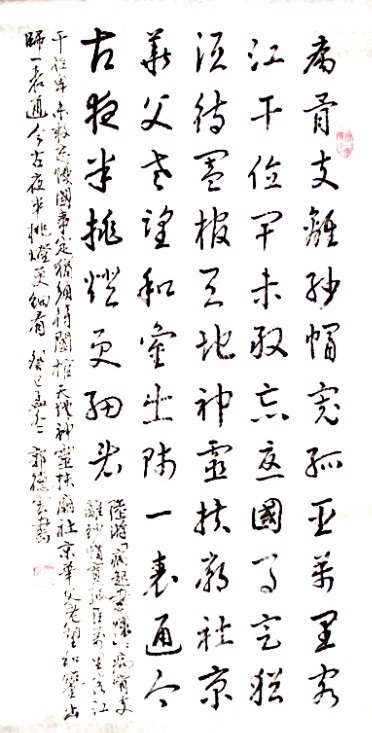 病骨支離紗帽寬孤臣萬里客
江干位卑未敢忘憂國事定猶
須待闔棺天地神靈扶廟社京
華父老望和鑾出師一表通今
古夜半挑燈更細看
陸游「病起書懷」病骨支
離紗帽寬孤臣萬里客江
干位卑未敢忘憂國事定猶須待闔棺天地神靈扶廟社京華父老望和鑾出
師一表通今古夜半挑燈更細看 癸巳 郭德書